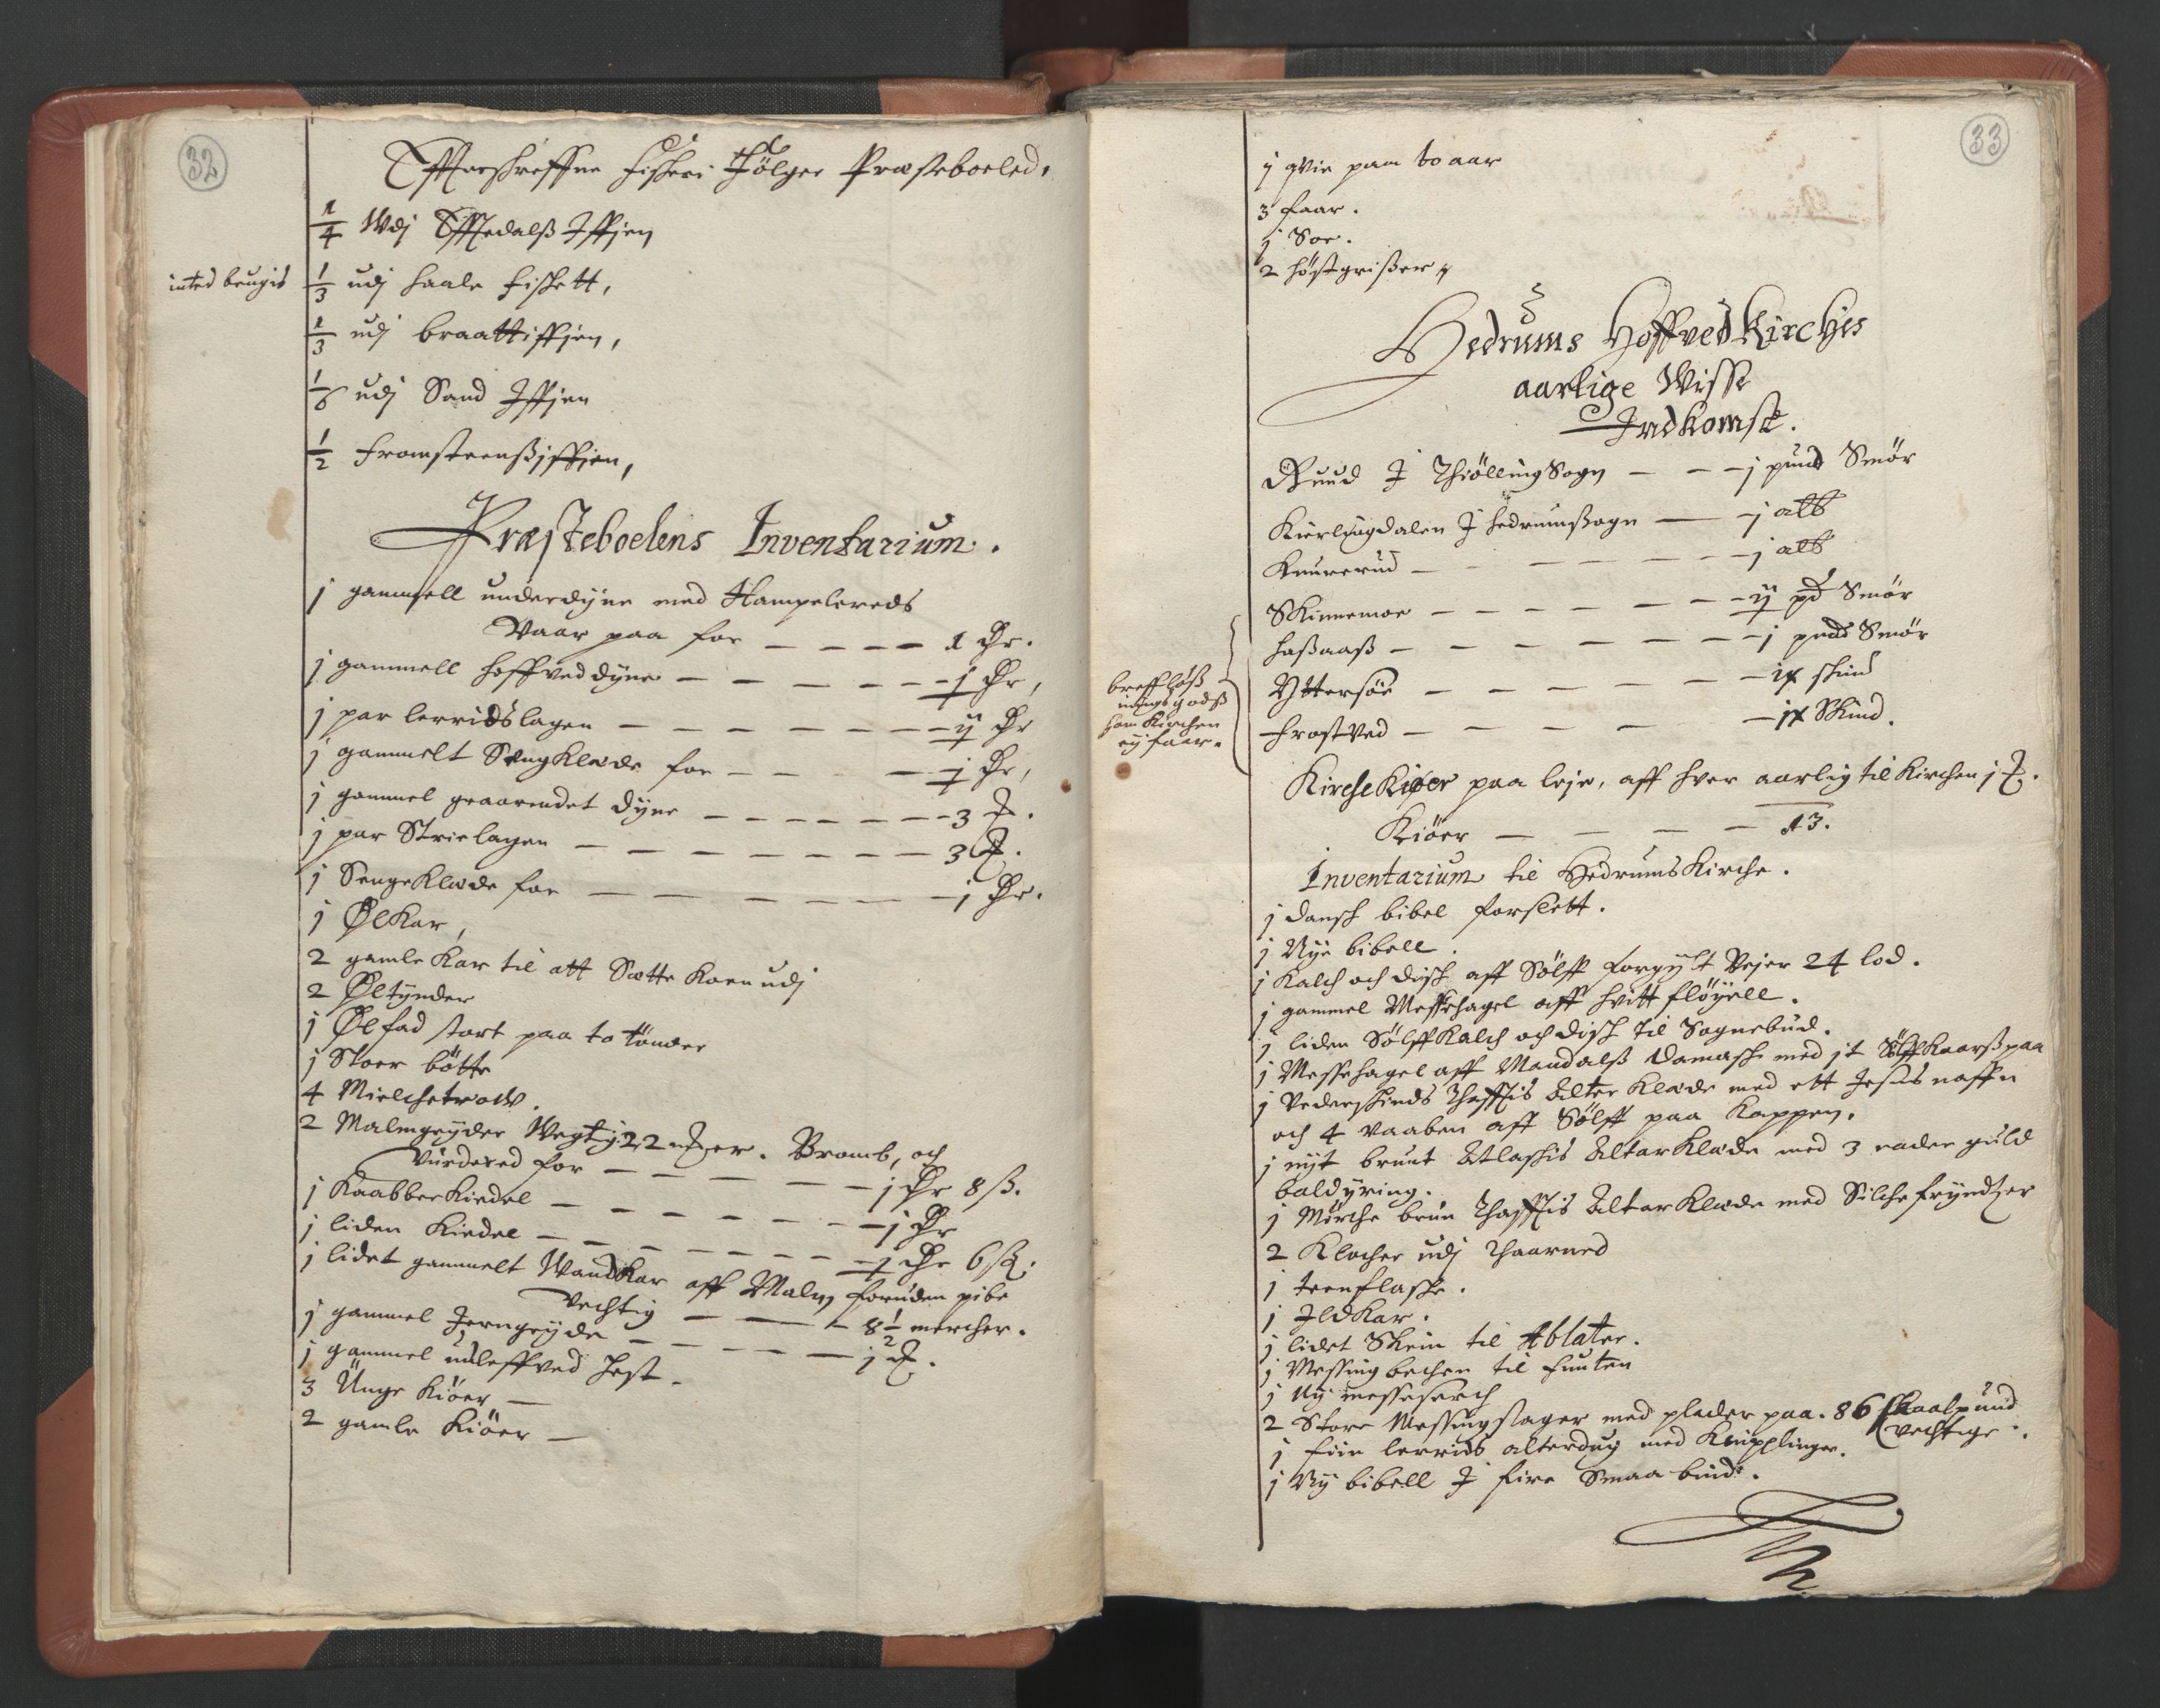 32
Effterschreffne Fischeri fölger Præsteboeled,
1/4 Udj Effledalß Iffjen
inted brugis
1/3 udj Haale fischett,
1/3 udj braattiffjen,
1/6 udj Sand Iffjen
1/2 Fromsteenßiffjen,
Præsteboelens Inventarium.
j gammell underdyne med Hampelereds
Vaar paa for — — — — 1 Dr.
j gammell hoffveddyne — — — — — j Dr,
j par lerridslagen — — — — — — ij Dr
j gammelt Sengklæde for — — — j Dr,
j gammel graarendet dyne — — — — — — 3 .
j par Strielagen — — — — — — — 3 .
j SengeKlæde for — — — — — — j Dr.
j ØlKar,
2 gamle Kar til att Sætte Korn udj
2 Øltynder
j Ølfad stort paa to tönder
j Stoer bötte
4 Mielchetrow.
2 Malmgryder Wegtig 22 er. Bromb, och
Vurdered for — — — — — — j Dr 8 ß.
j KaabberKiedel — — — — — — — j Dr
j liden Kiedel — — — — — — — j Dr 6 ß.
j lidet gammelt WandKar aff Malm foruden pibe
Vechtig — — — 8 1/2 mercher.
j gammel Jerngryde — — — — — j .
j gammel udleffved Hest.
3 Unge Kiöer —
2 gamle Kiöer —
33
j qvie paa to aar
3 faar.
j Soe.
2 höstgrißer
Hedrums Hoffved Kirches
aarlige Wisse
Indkomst.
Ruud J Thiölling Sogn — — j pund Smör
Kierlingdalen J hedrumßogn — j alb
Knurerud — — — — — — j alb
Skinnemoe — — — — — — ij pd Smör
Haßaaß — — — — — — — j pund Smör
breffløß
godß
som Kirchen
ej faar.
Yttersöe — — — — — — ix skind
Frostved — — — — — ix Skind.
KircheKiöer paa leje, aff hver aarlig til Kirchen j .
Kiöer — — — — 13.
Inventarium til Hedrums Kirche.
j dansch bibel forslett.
j Nye bibell.
j Kalch och disch aff Sölff forgylt Vejer 24 lod.
j gammel Messehagel aff hvitt flöyell.
j liden SölffKalch och disch til Sognebud.
j Messehagel aff Mandalß Damasch med it SölffKaarß paa
j Vederskinds Thafftis Alter Klæde med ett Jesus naffn
och 4 vaaben aff Sölff paa Kappen.
j nyt brunt Atlaschis AltarKlæde med 3 rader guld
baldyring.
j Mörche brun Thafftis AltarKlæde med Silche fryndzer
2 Klocher udj Thaarned
j teenflasche.
j IldKar.
j lidet Skrin til Ablater.
j Messing bechen til funten
j Ny messeserch
2 Store Messingstager med plader paa. 86 skaalpund
vechtige.
j fiin lerrids alterdug med Knipplinger.
j Ny bibell J fire Smaa bind.